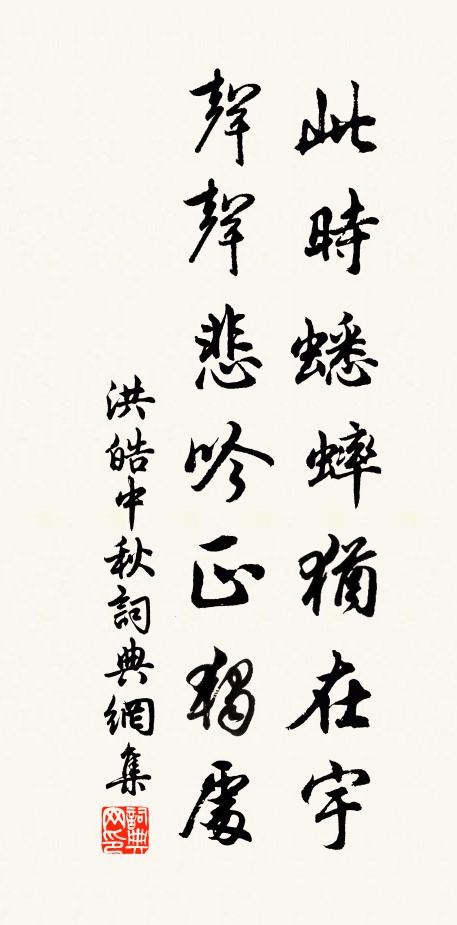 此時蟋蟀猶在宇
聲聲悲吟正獨處
洪皓中秋詞典網集
詞典网印